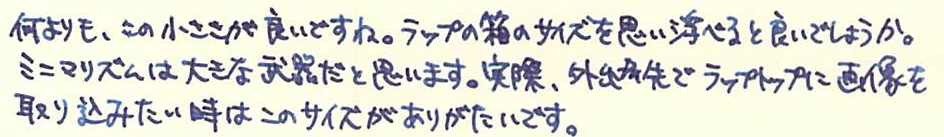 何よりも、この小ささが良いですね。ラップの箱のサイズを思い浮べると良いでしょうか。
ミニマリズムは大きな武器だと思います。実際、外出先でラップトップに画像を
取り込みたい時はこのサイズがありがたいです。